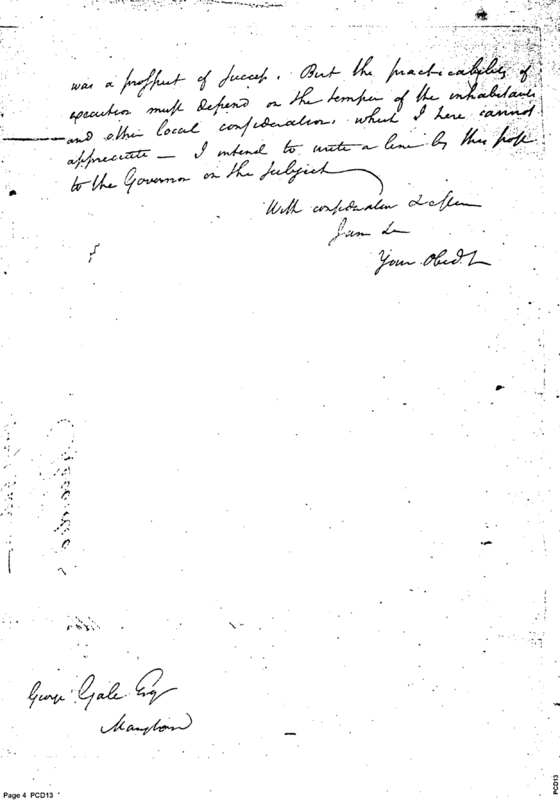 was a prospect of success. But the practicability of
execution must depend on the temper of the inhabitants
and other local considerations, which I here cannot
appreciate — I intend to write a line by this post
to the Governor on the subject
With consideration & esteem
I am
Your Obed.
George Gale Esq
Maryland
Page 4 PCD13
PCD13